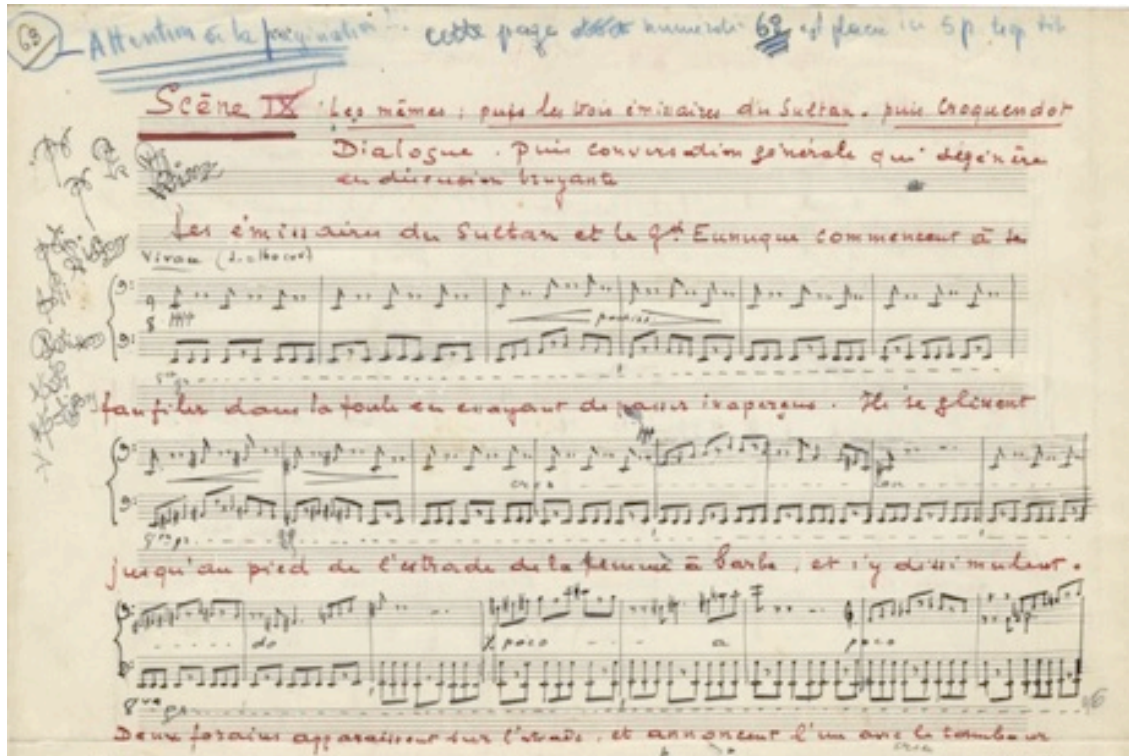 68
Attention à la pagination!!! cette page numérotée 68 est placée ici 5 p. trop tôt
Scène IX : Les mêmes ; puis les trois émissaires du Sultan. puis Croquendot
Dialogue. Puis conversation générale qui dégénère
en discussion bruyante
Les émissaires du Sultan et le Gd Eunuque commencent à se
Vivace
9
8
faufiler dans la foule en essayant de passer inaperçus. Ils se glissent
cres
cen
jusqu'au pied de l'estrade de la femme à barbe, et s'y dissimulent.
do
poco a poco
8va
Deux forains apparaissent sur l'estrade, et annoncent l'un avec le tambour